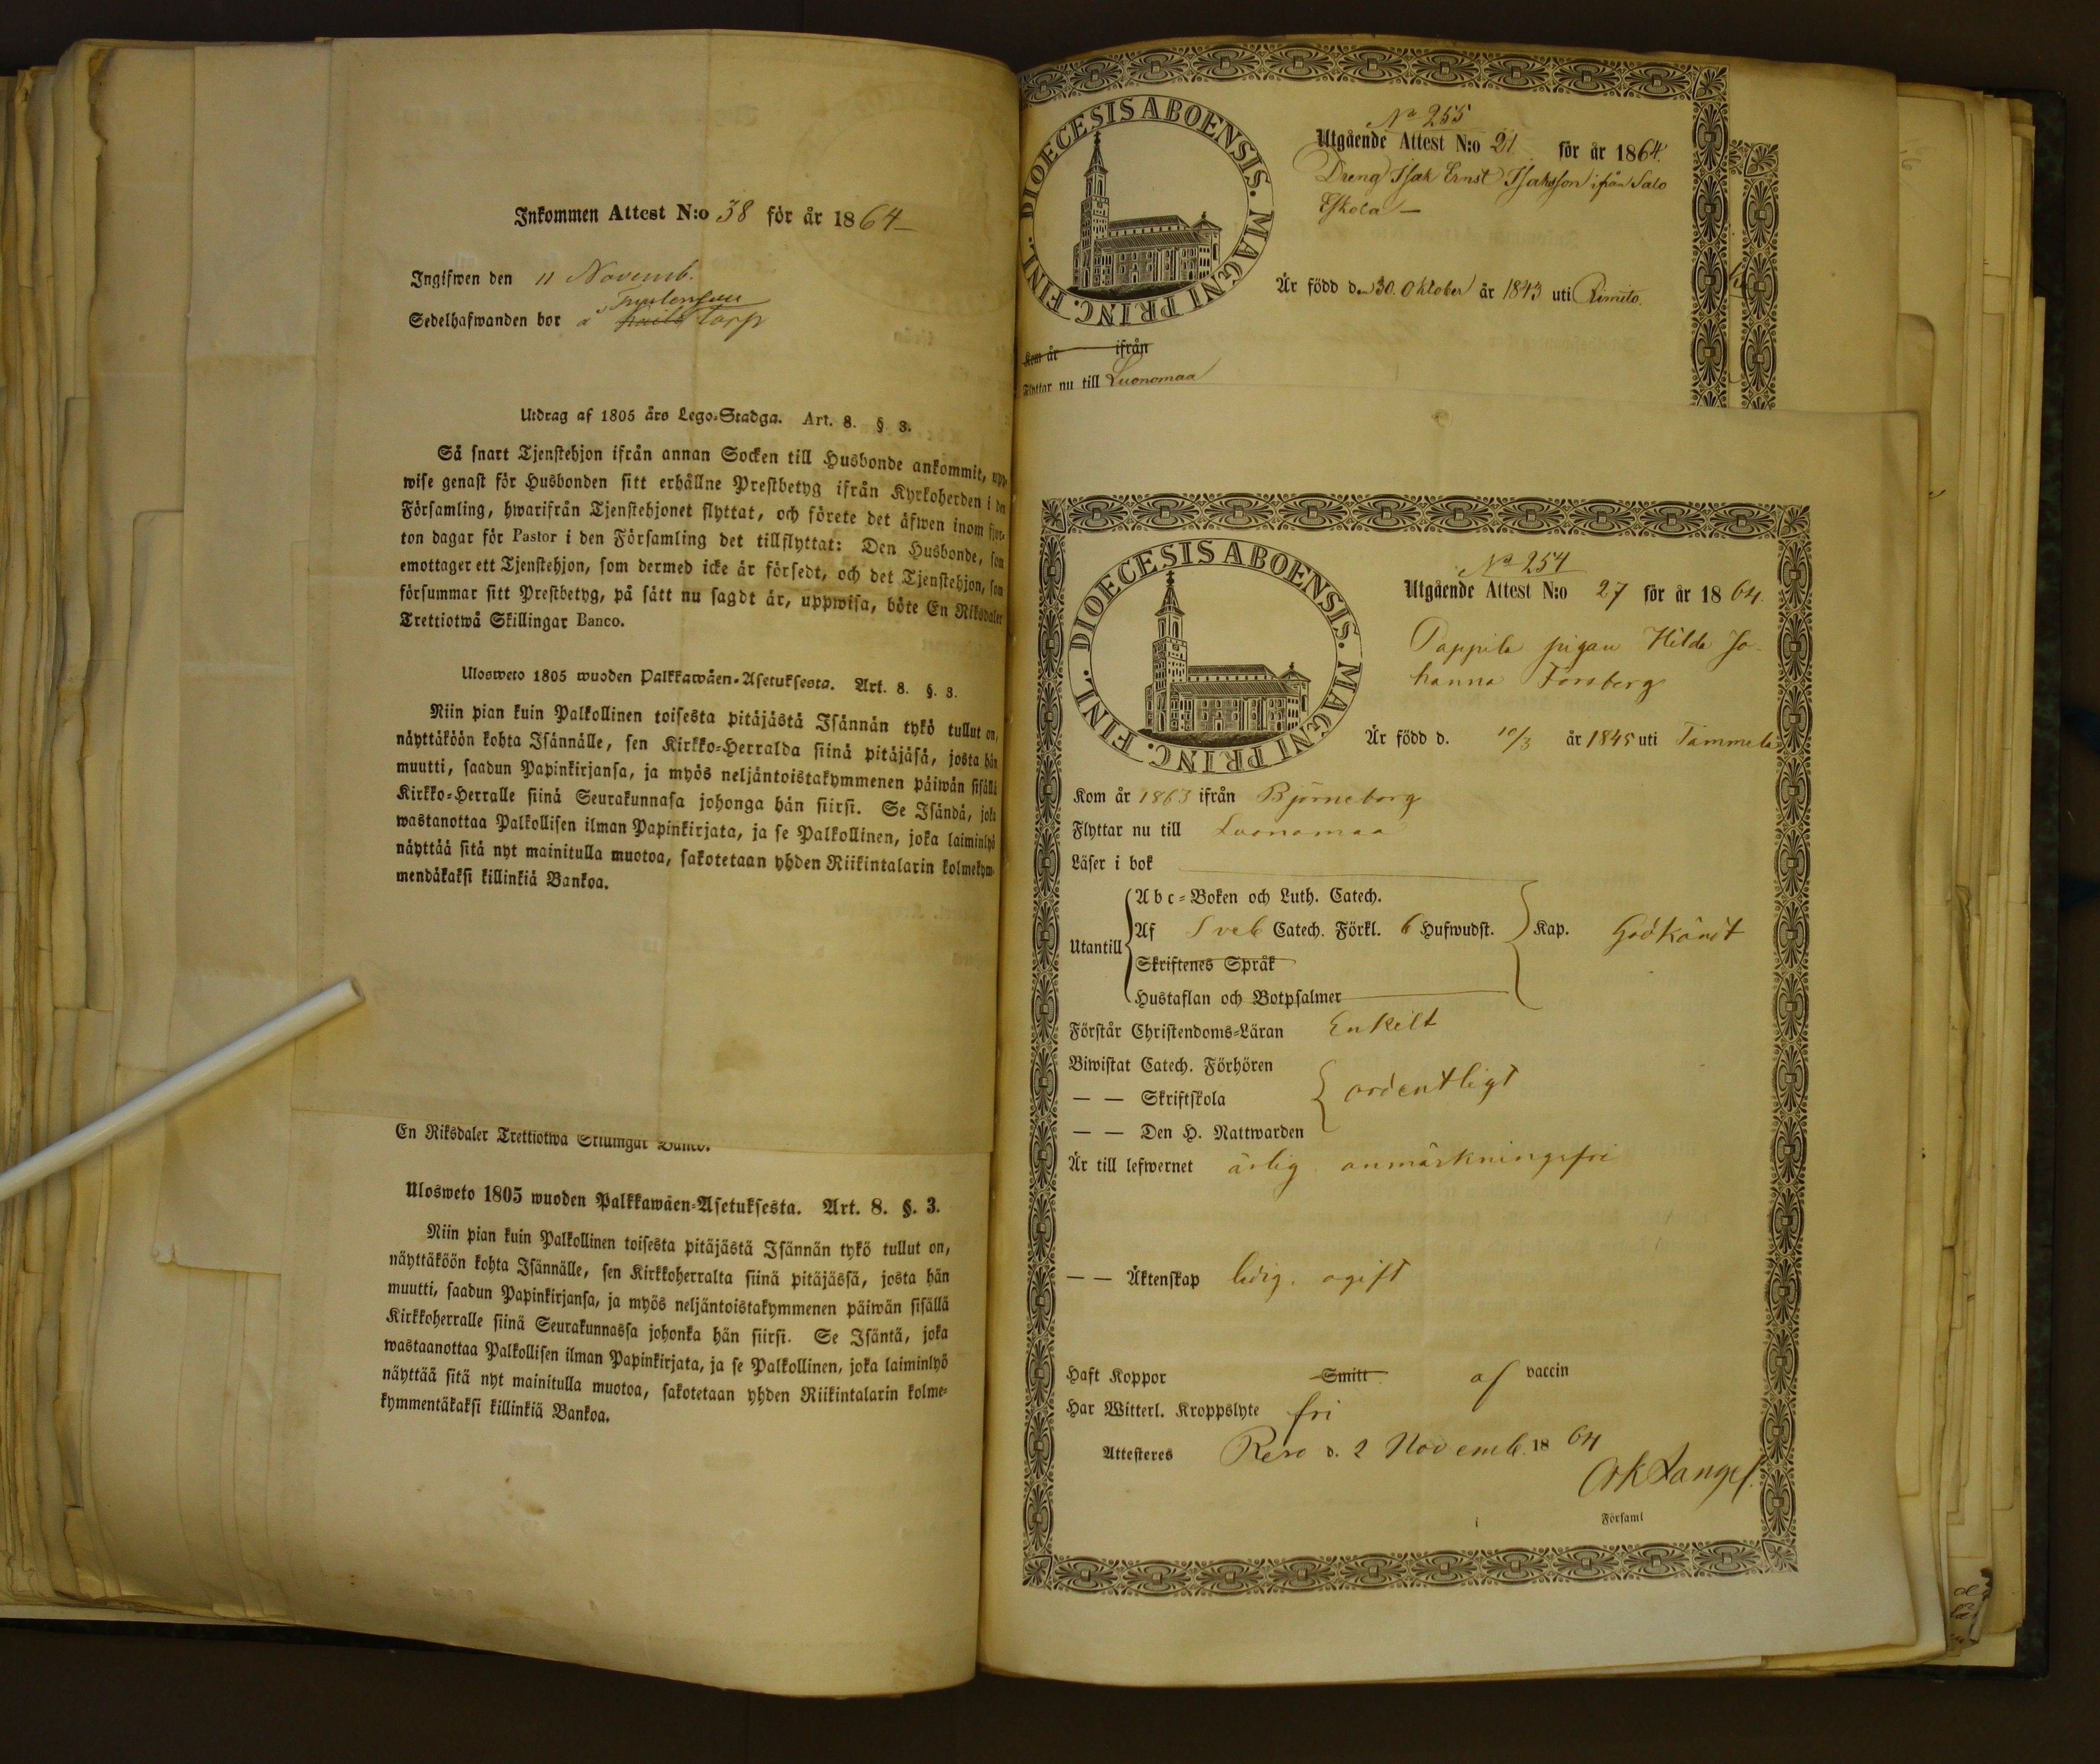 Inkommen Attest N:o 38 för år 1864
Ingifwen den 11 Novemb.
Sedelhafwanden bor å torp
Utdrag af 1805 års Lego-Stadga. Art. 8. § 3.
Så snart Tjenstehjon ifrån annan Socken till Husbonde ankommit, upp-
wise genast för Husbonden sitt erhållne Prestbetyg ifrån Kyrkoherden i den
Församling, hwarifrån Tjenstehjonet flyttat, och förete det äfwen inom fjor-
ton dagar för Pastor i den Församling det tillflyttat: Den Husbonde, som
emottager ett Tjenstehjon, som dermed icke är försedt, och det Tjenstehjon, som
försummar sitt Prestbetyg, på sätt nu sagdt är, uppwisa, böte En Riksdaler
Trettiotwå Skillingar Banco.
Ulosweto 1805 wuoden Palkkawäen-Asetuksesta. Art. 8. §. 3.
Niin pian kuin Palkollinen toisesta pitäjästä Isännän tykö tullut on,
näyttäköön kohta Isännälle, sen Kirkko-Herralda siinä pitäjäsä, josta hän
muutti, saadun Papinkirjansa, ja myös neljäntoistakymmenen päiwän sisällä
Kirkko-Herralle siinä Seurakunnasa johonga hän siirsi. Se Isändä, joka
wastanottaa Palkollisen ilman Papinkirjata, ja se Palkollinen, joka laiminlyö
näyttää sitä nyt mainitulla muotoa, sakotetaan yhden Riikintalarin kolmekym-
mendäkaksi killinkiä Bankoa.
En Riksdaler Trettiotwå Skillingar Banco.
Ulosweto 1805 wuoden Palkkawäen-Asetuksesta. Art. 8. §. 3.
Niin pian kuin Palkollinen toisesta pitäjästä Isännän tykö tullut on,
näyttäköön kohta Isännälle, sen Kirkkoherralta siinä pitäjässä, josta hän
muutti, saadun Papinkirjansa, ja myös neljäntoistakymmenen päiwän sisällä
Kirkkoherralle siinä Seurakunnassa johonka hän siirsi. Se Isäntä, joka
wastaanottaa Palkollisen ilman Papinkirjata, ja se Palkollinen, joka laiminlyö
näyttää sitä nyt mainitulla muotoa, sakotetaan yhden Riikintalarin kolme-
kymmentäkaksi killinkiä Bankoa.
DIOECESIS ABOENSIS. MAGNI PRINC. FINL.
No 255
Utgående Attest N:o 21 för år 1864.
Dreng Isak Ernst Isaksson ifrån Salo
Eskola
Är född den 30. Oktober år 1843 uti Rimito.
Kom år ifrån
Flyttar nu till Luonomaa
DIOECESIS ABOENSIS. MAGNI PRINC. FINL.
No 254
Utgående Attest N:o 27 för år 1864.
Pappila pigan Hilda Jo-
hanna Forsberg
Är född d. 10/3 år 1845 uti Tammela
Kom år 1863 ifrån Björneborg
Flyttar nu till Luonomaa
Läser i bok
Utantill
Abc-Boken och Luth. Catech.
Af Sveb Catech. Förkl. 6 Hufwudst. Kap. Godkändt
Skriftenes Språk
Hustaflan och Botpsalmer
Förstår Christendoms-Läran Enkelt
Biwistat Catech. Förhören
— — Skriftskola ordentligt
— — Den H. Nattwarden
Är till lefwernet ärlig anmärkningsfri
— — Äktenskap ledig. ogift
Haft Koppor Smitt af vaccin
Har Witterl. Kroppslyte fri
Attesteres Reso d. 2 Novemb. 1864
Församl